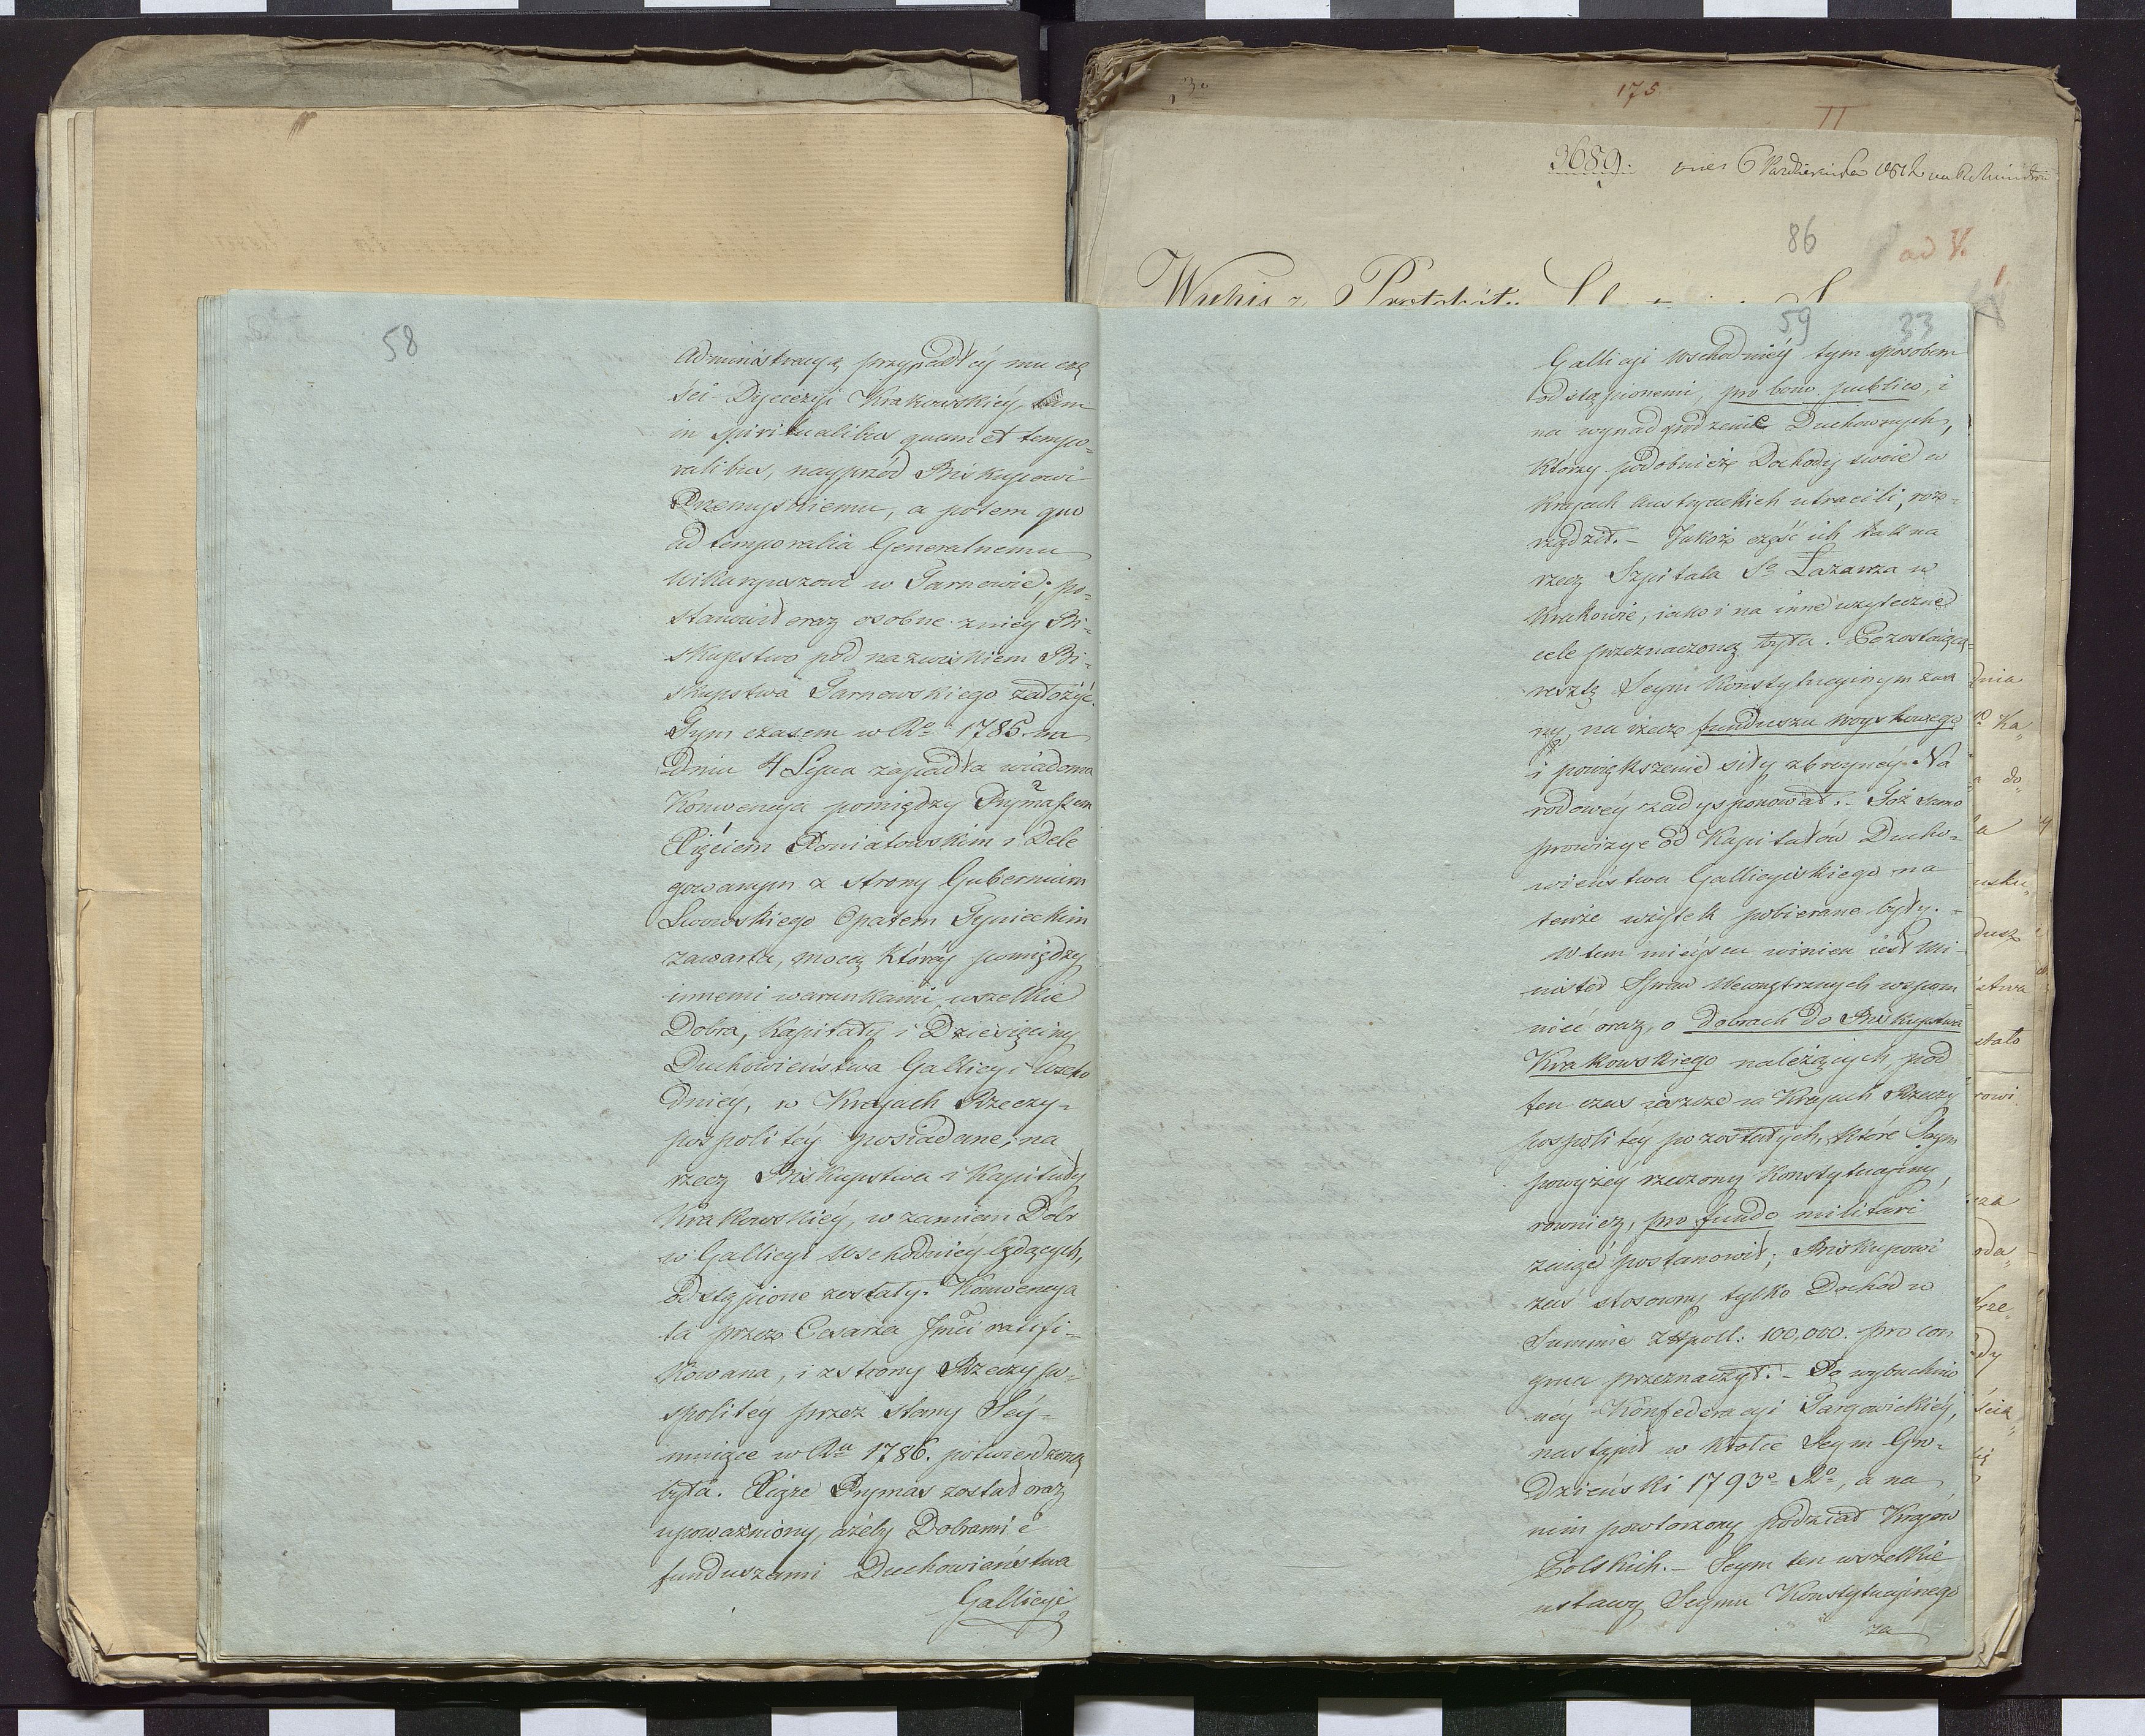 58
Administracyą przypadłéy mu czę
ści Dyecezyi Krakowskiéy, tam
in spiritualibus quam et tempo-
ralibus, nayprzód Biskupowi
Przemyskiemu, a potem quo
ad temporalia Generalnemu
Wikaryuszowi w Tarnowie; po-
stanowił oraz osobne z niéy Bi-
skupstwo pod nazwiskiem Bi-
skupstwa Tarnowskiego założyć.
Tym czasem w Ro 1785 na
Dniu 4 Lipca zapadła wiadoma
Konwencya pomiędzy Prymasem
Xięciem Poniatowskim i Dele
gowanym z strony Gubernium
Lwowskiego Opatem Tynieckim
zawarta, mocą któréy pomiędzy
innemi warunkami, wszelkie
Dobra, Kapitały i Dziesięciny
Duchowieństwa Gallicyi Wscho
dniéy, w Krajach Rzeczy-
pospolitéy posiadane, na
rzecz Biskupstwa i Kapituły
Krakowskiéy, w zamian Dóbr
w Gallicyi Wschodniéy będących,
odstąpione zostały. Konwencya
ta przez Cesarza Jmci ratifi-
kowana, i z strony Rzeczypo-
spolitéy przez stany Séy-
muiące w Ru 1786. potwierdzoną
była. Xiąże Prymas został oraz
upoważniony, ażeby Dobrami i
funduszami Duchowieństwa
Gallicyi
175
II
3689.
86
ad V.
59 33
Gallicyi Wschodniéy tym sposobem
odstąpionemi, pro bono publico, i
na wynadgrodzenie Duchownych,
którzy podobnież Dochody swoie w
Krajach Austryackich utracili, roz-
rządził. - Jakoż część ich tak na
rzecz Szpitala So Łazarza w
Krakowie, iako i na inne użyteczne
cele przeznaczoną była. Pozostaiącą
resztą Seym Konstytucyinym zwa
ny, na rzecz funduszu woyskowego
i powiększenie siły zbroynéy Na
rodowéy zadysponował. - Toż samo
prowizye od Kapitałów Ducho-
wieństwa Gallicyiskiego na
tenże użytek pobierane były. -
W tem mieyscu winien iest Mi-
nister Spraw Wewnętrznych wspom
nieć oraz, o dobrach do Biskupstwa
Krakowskiego należących, pod
ten czas ieszcze w Krajach Rzeczy
pospolitéy pozostałych, które Seym
powyżéy rzeczony Konstytucyiny,
rownież, pro fundo militari
zaiąć postanowił; Biskupowi
zaś stosowny tylko Dochód w
Summie Złpoll: 100,000. pro con
grua przeznaczył. - Po wybuchnio
néy Konfederacyi Targowickiéy,
nastąpił w krotce Seym Gro-
dzieński 1793o Ro, a na
nim powtorzony podział Krajów
Polskich. - Seym ten wszelkie
ustawy Seymu Konstytucyinego
za